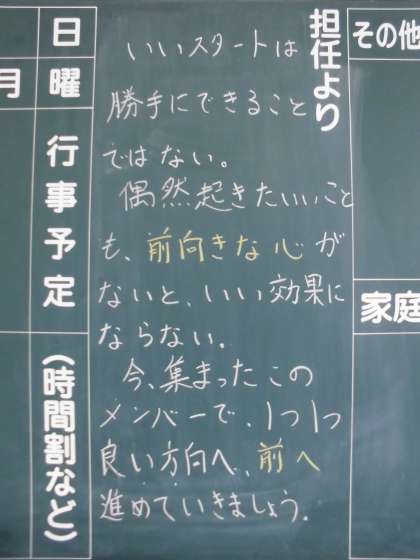 その他
家庭
担任より
いいスタートは
勝手にできること
ではない。
偶然起きたいいこと
も、前向きな心が
ないと、いい効果に
ならない。
今、集まったこの
メンバーで、1つ1つ
良い方向へ、前へ
進めていきましょう。
日
曜
行事予定
(時間割など)
月